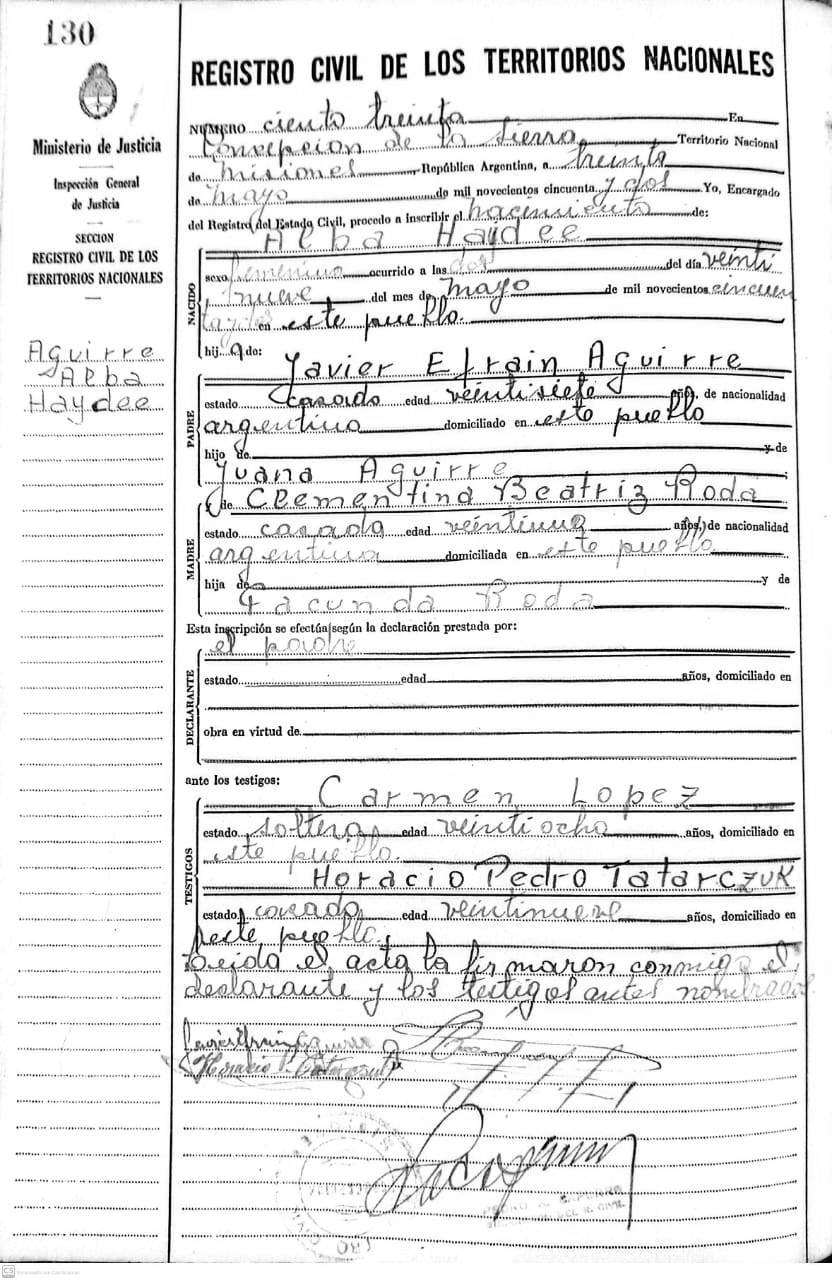 130
Ministerio de Justicia
Inspección General
de Justicia
SECCION
REGISTRO CIVIL DE LOS
TERRITORIOS NACIONALES
Aguirre
Alba
Haydee
REGISTRO CIVIL DE LOS TERRITORIOS NACIONALES
NUMERO ciento treinta En
Concepcion de la Sierra Territorio Nacional
de Misiones República Argentina, a treinta
de Mayo de mil novecientos cincuenta y dos Yo, Encargado
del Registro del Estado Civil, procedo a inscribir el nacimiento de:
Alba Haydee
NACIDO
sexo femenino ocurrido a las dos del día veinti
nueve del mes de mayo de mil novecientos cincuen
ta y dos en este pueblo.
hij a de:
Javier Efrain Aguirre
PADRE
estado casado edad veintisiete años, de nacionalidad
argentino domiciliado en este pueblo
hijo de y de
Juana Aguirre
y de Clementina Beatriz Roda
MADRE
estado casada edad años, de nacionalidad
argentina domiciliada en este pueblo
hija de y de
Facunda Roda
Esta inscripción se efectúa según la declaración prestada por:
el padre
DECLARANTE
estado edad años, domiciliado en
obra en virtud de
ante los testigos:
Carmen Lopez
TESTIGOS
estado soltera edad veintiocho años, domiciliado en
este pueblo.
Horacio Pedro Tatarczuk
estado casado edad veintinueve años, domiciliado en
este pueblo.
Leida el acta la firmaron conmigo el
declarante y los testigos antes nombrados